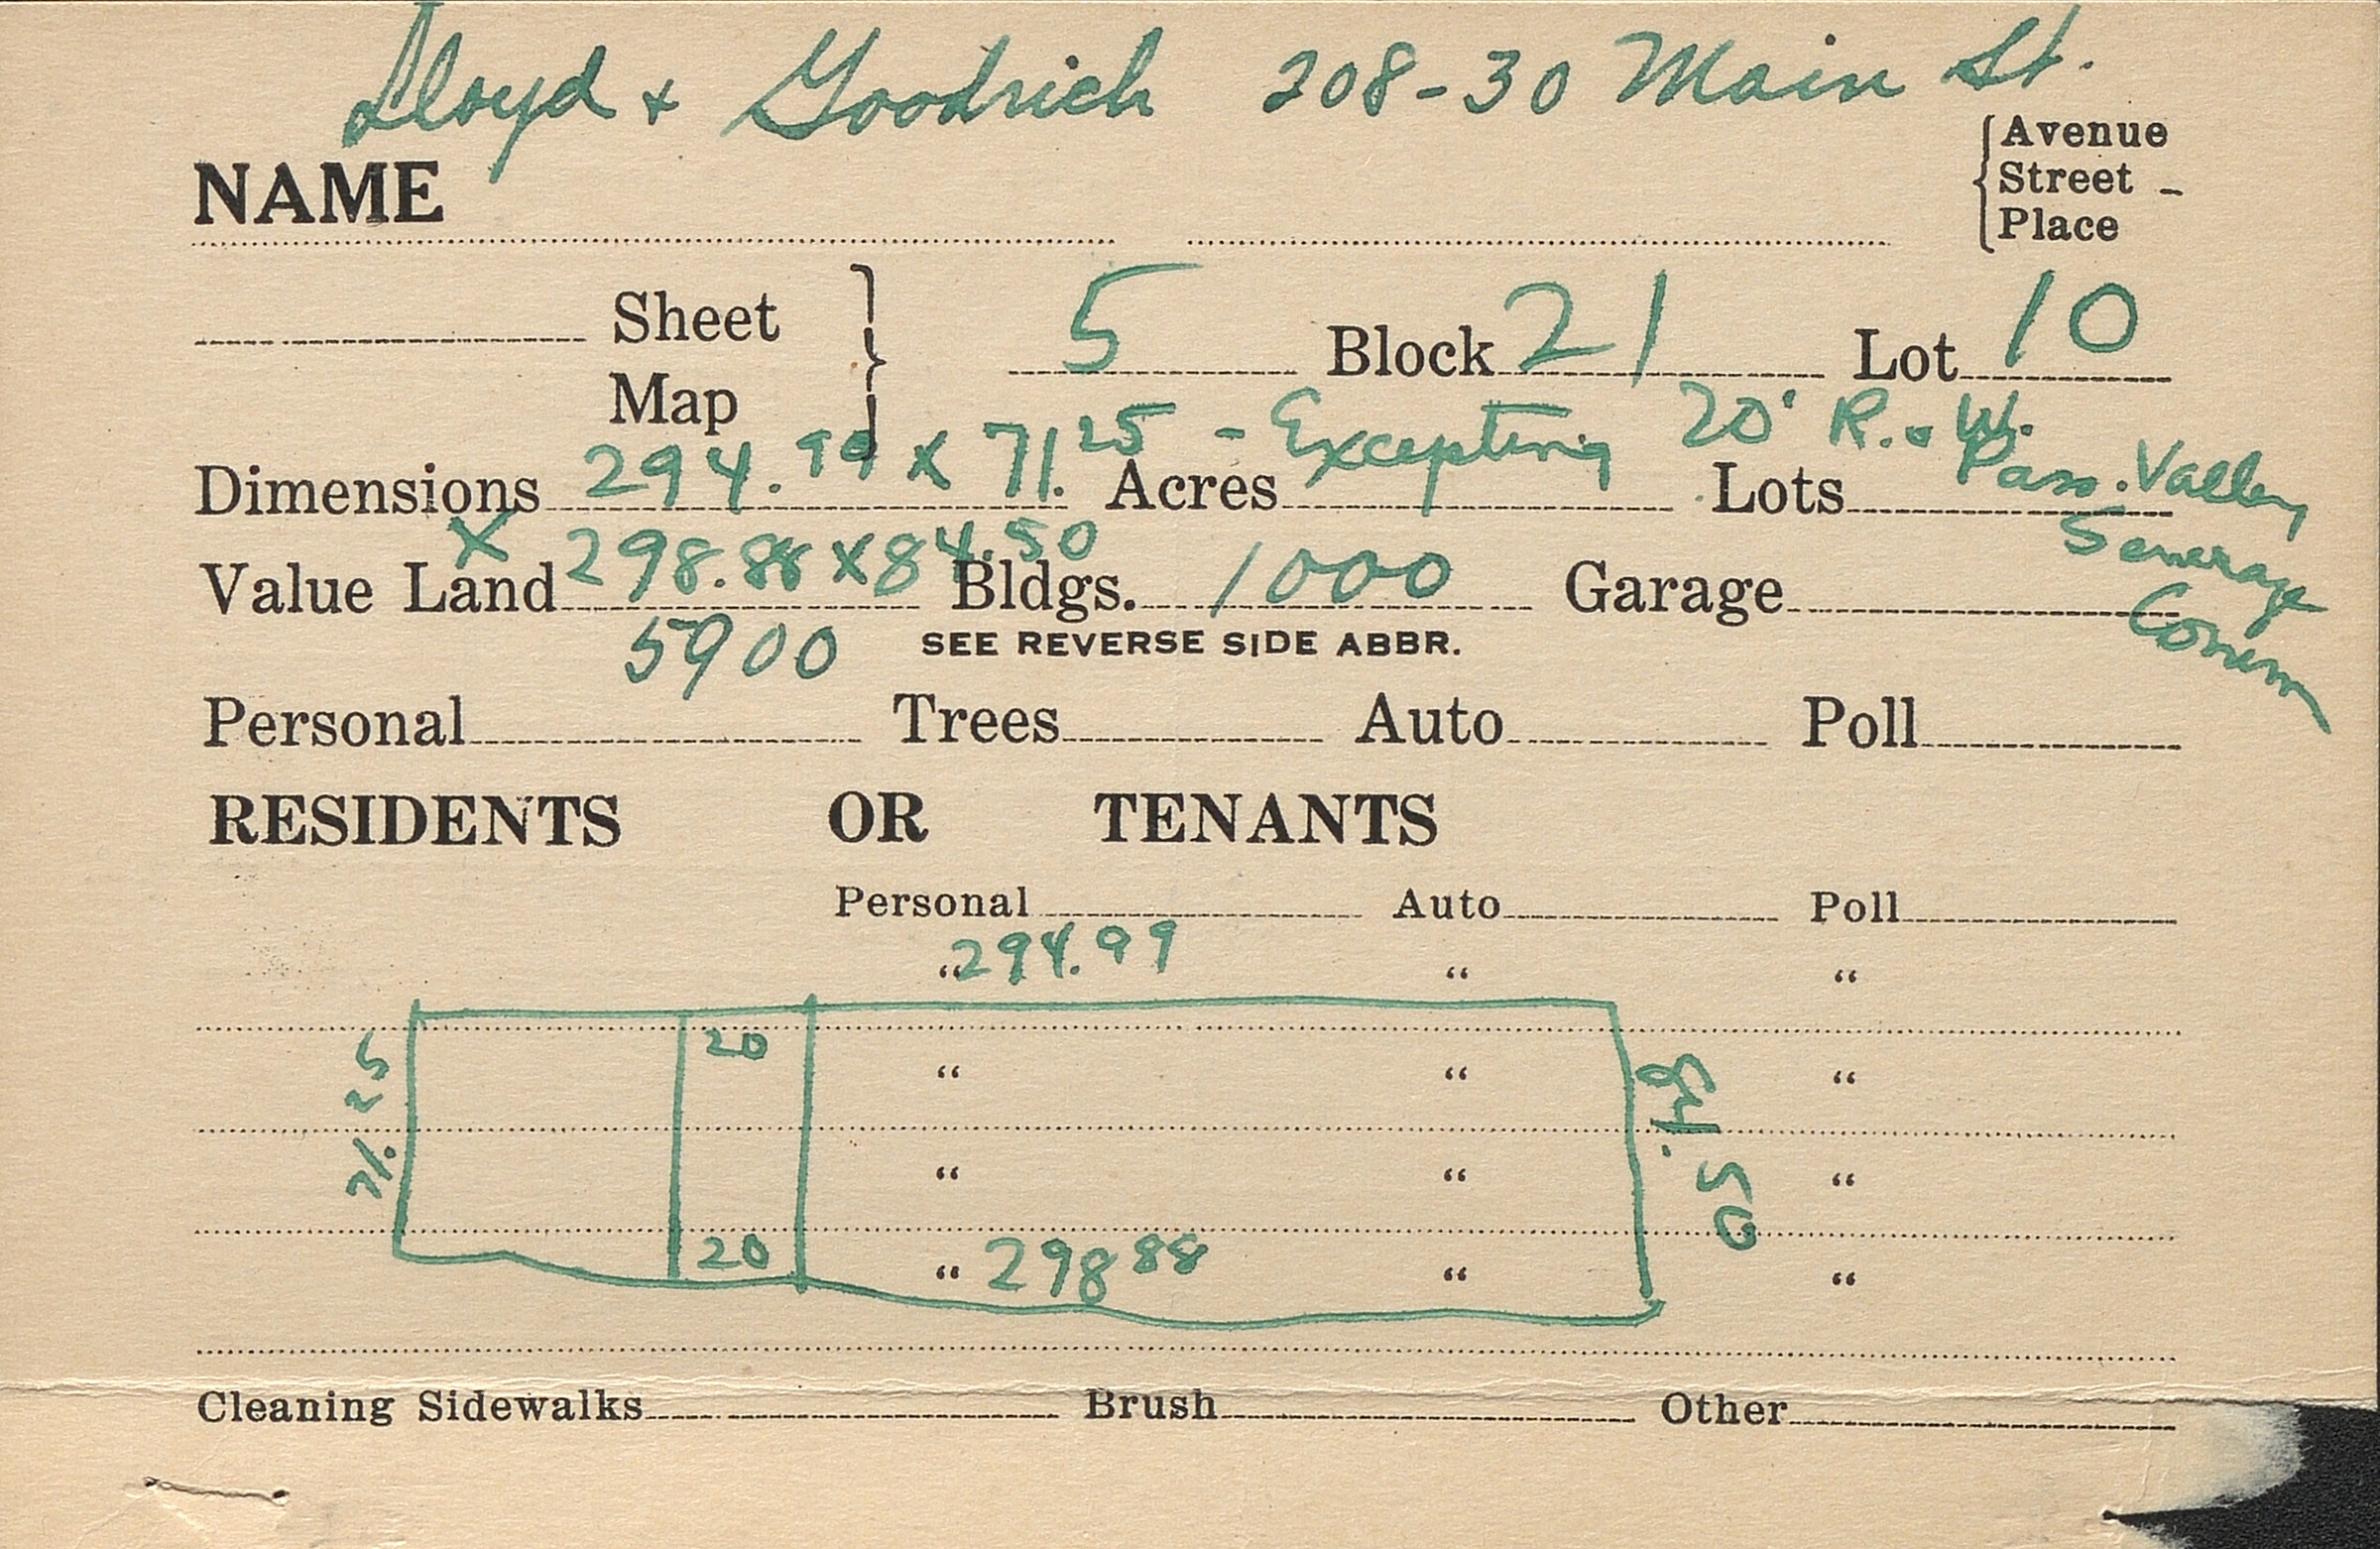 Lloyd + Goodrich 208-30 Main St.
NAME
Avenue
Street -
Place
Sheet
Map
5 Block 21 Lot 10
Dimensions 294.99 x 71.25 - Excepting 20' R.o W.
Acres Lots Pass. Valley
Sewerage
Comm
x 298.88 x 84.50
Value Land 5900 Bldgs. 1000 Garage
SEE REVERSE SIDE ABBR.
Personal Trees Auto Poll
RESIDENTS OR TENANTS
Personal Auto Poll
" 294.99 " "
20
" " "
71.25
84.50
" " "
20
" 298 88 " "
Cleaning Sidewalks Brush Other